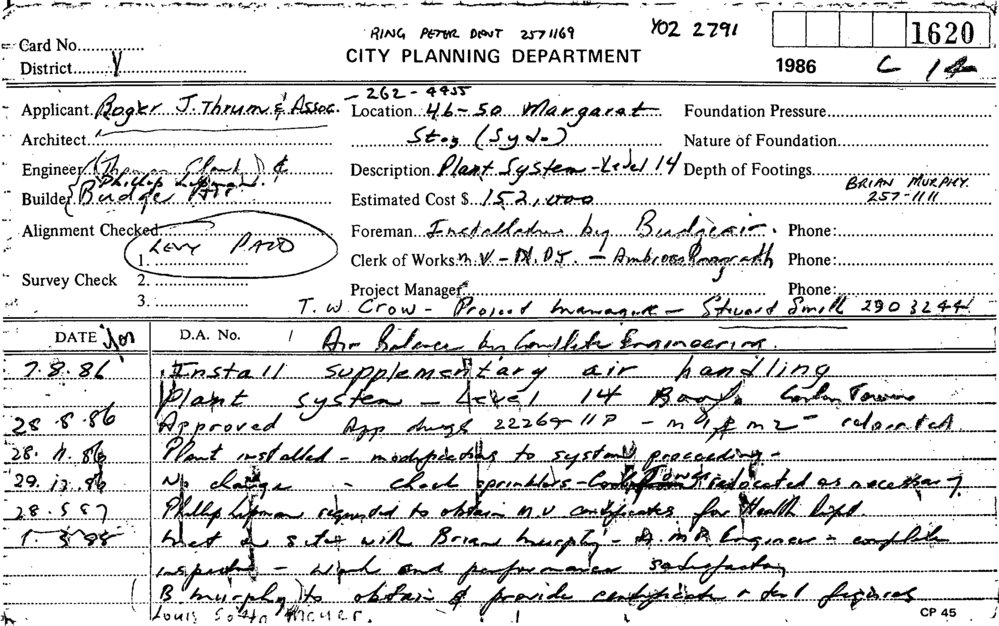 RING PETER DENT 2571169 YO2 2791
1620
Card No.
CITY PLANNING DEPARTMENT
District Y
1986 C 14
262-4455
Applicant Roger J. Thrum & Assoc. Location 46-50 Margaret Foundation Pressure
Architect St (Syd) Nature of Foundation
Engineer (Thomson Clark) & Description Plant System - Level 14 Depth of Footings
Phillip Lipman
Builder Budge Estimated Cost $ 152,000 BRIAN MURPHY 257-1111
Alignment Checked Foreman Installation by Budgeair. Phone:
LEVY PAID
1. Clerk of Works M.V - - Ambrose Phone:
Survey Check 2.
Project Manager Phone:
3. T.W. Crow - Project manager - Stuard Smith 290 3244
DATE D.A. No. Air Balance by Complete Engineering.
7.8.86 Install supplementary air handling
Plant system - Level 14
28.8.86 Approved App dwgs 22269 - M1 & M2 -
28.11.86 Plant installed - modifications to system proceeding -
29.12.86 No change - check sprinklers - relocated as necessary
28.5.87 Phillip Lipman requested to obtain M.V certificates for Health Dept
Met on site with Brian Murphy - Engineer - complete
inspection - work and performance satisfactory
(B Murphy) to obtain & provide certificate & figures
Louis
CP 45